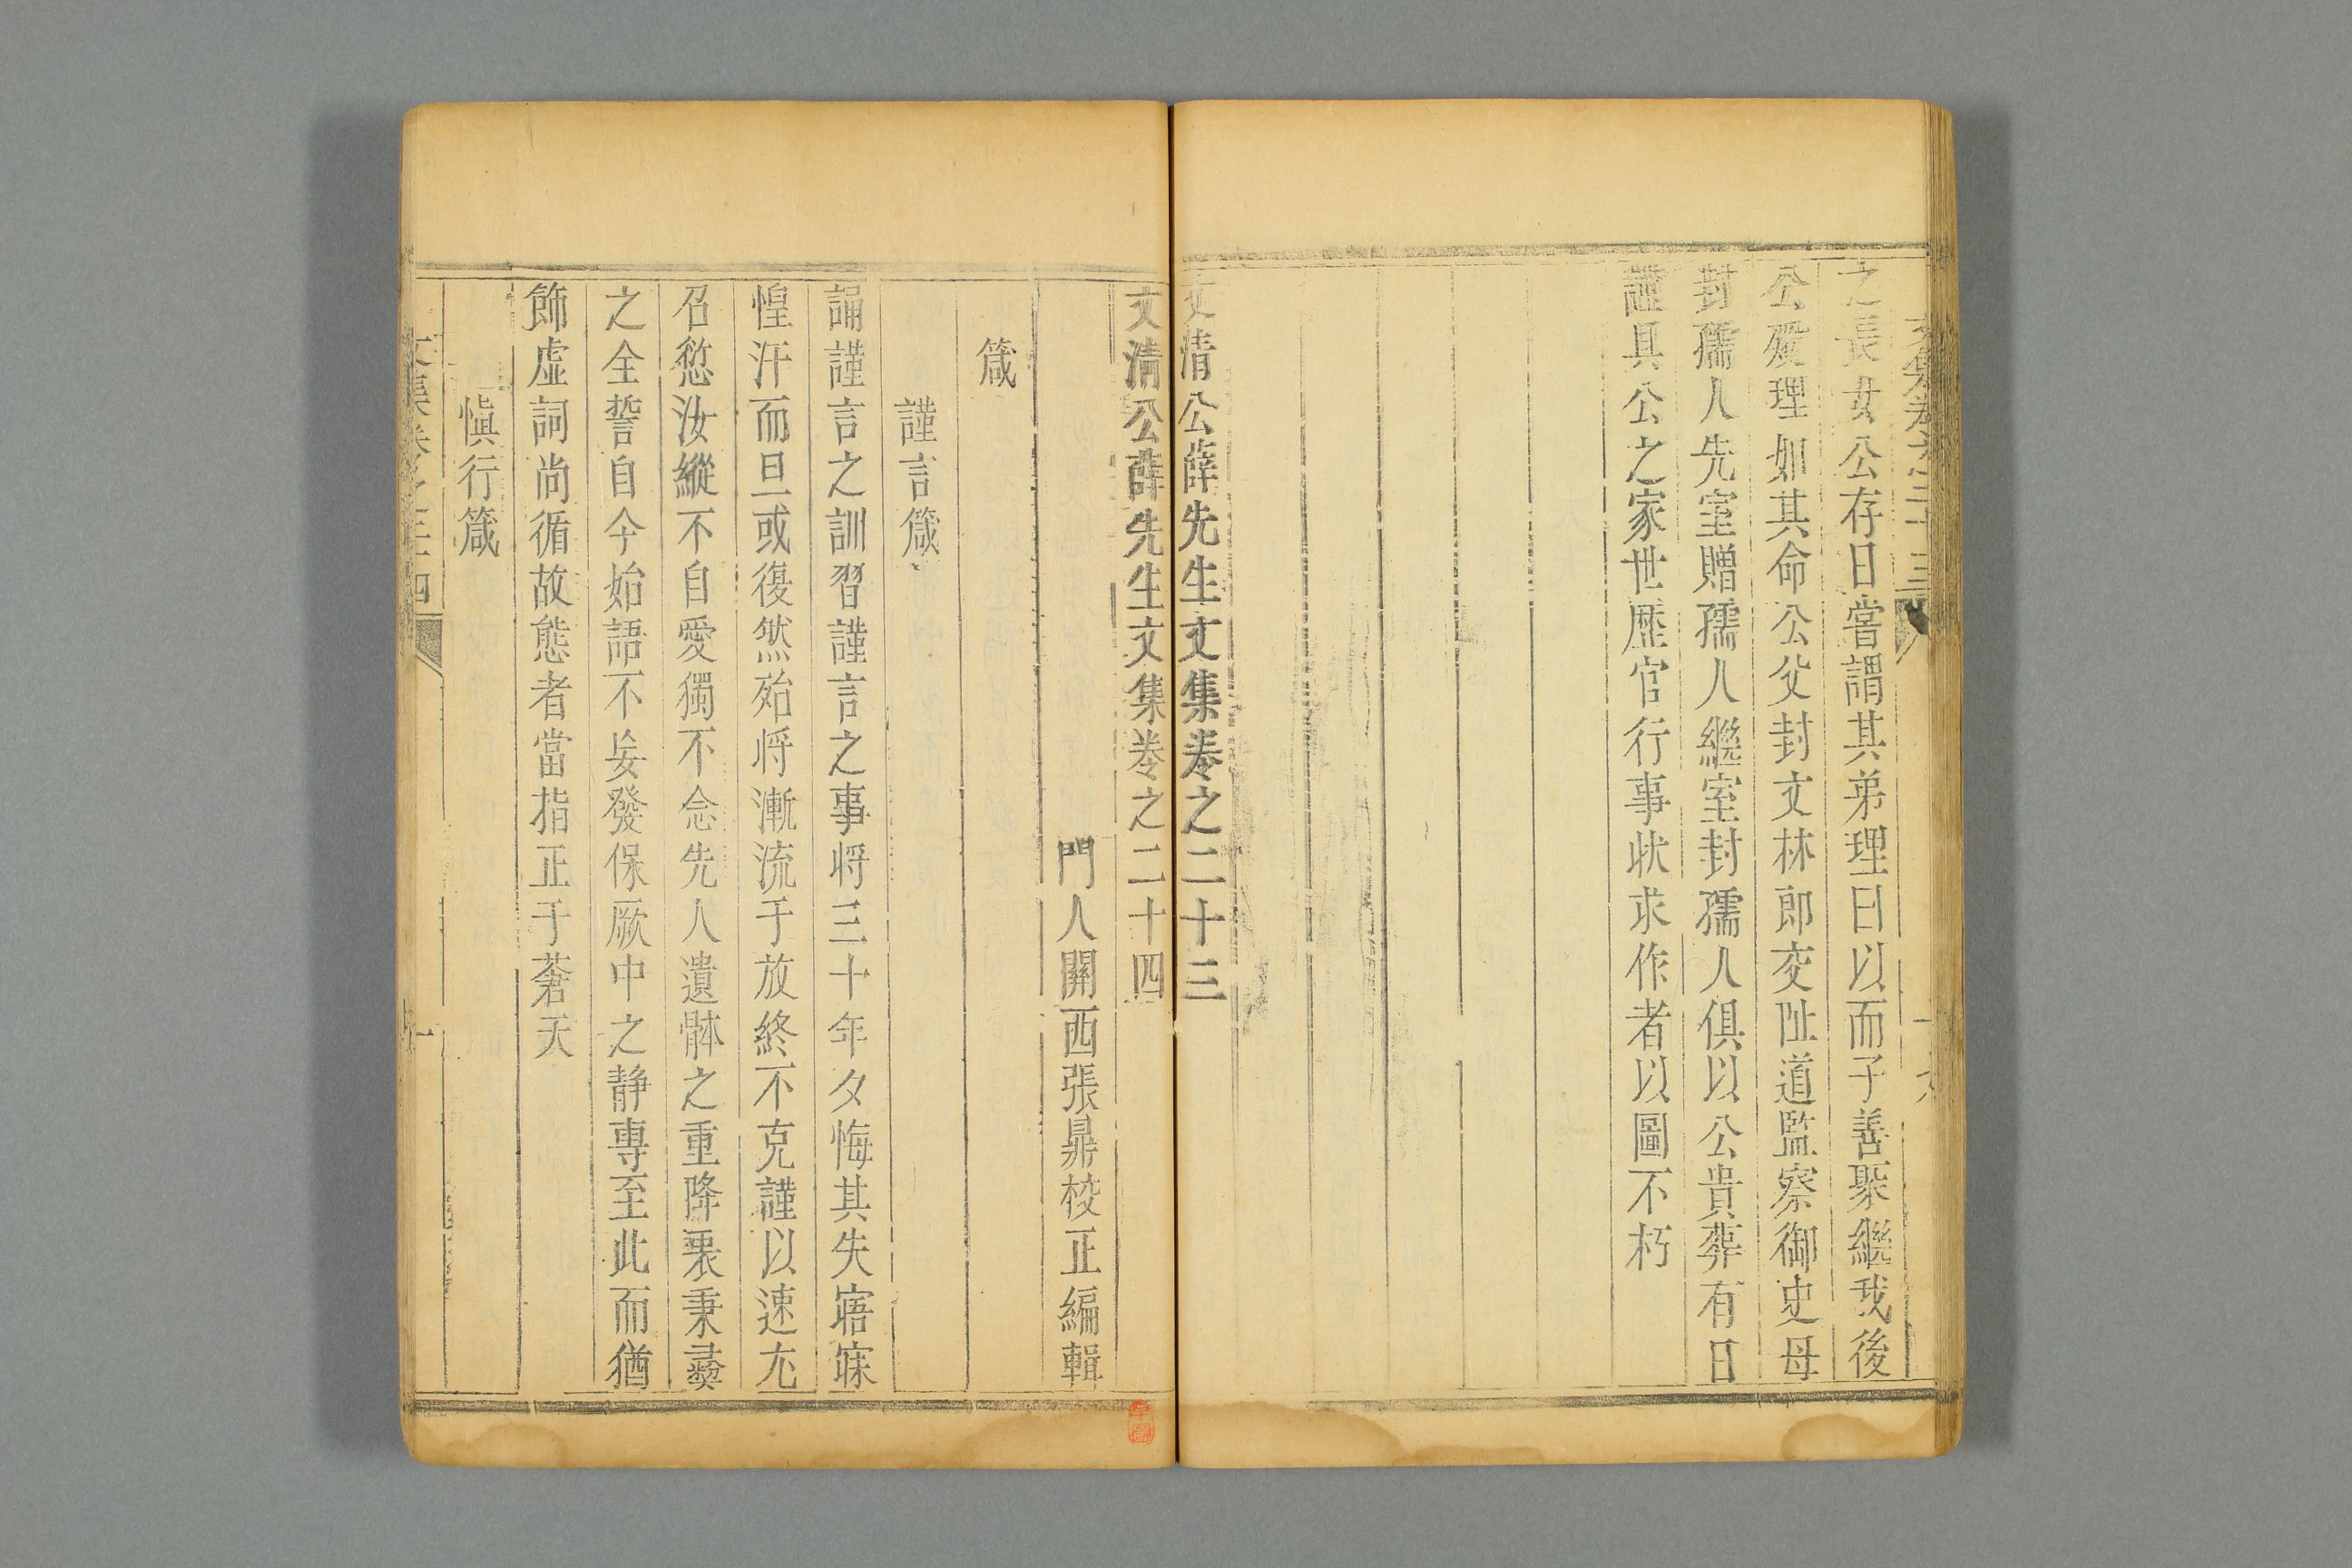 文集卷之二十三
十六
之長女公存日嘗謂其弟理曰以而子善聚繼我後
公歿理如其命公父封文林郎交阯道監察御史母
封孺人先室贈孺人繼室封孺人俱以公貴葬有日
謹具公之家世歷官行事狀求作者以圖不朽
文清公薛先生文集卷之二十三
文清公薛先生文集卷之二十四
門人關西張鼎校正編輯
箴
謹言箴
誦謹言之訓習謹言之事將三十年夕悔其失寤寐
惶汗而旦或復然殆将漸流于放終不克謹以速尤
召愆汝縱不自愛獨不念先人遺體之重降衷秉彝
之全誓自今始語不妄發保厥中之静専至此而猶
飾虛詞尚循故態者當指正于蒼天
慎行箴
文集卷之二十四
一